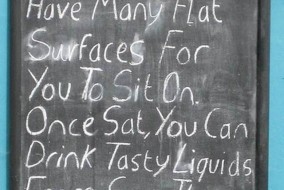 Have Many Flat
Surfaces For
You To Sit On.
Once Sat, You Can
Drink Tasty Liquids